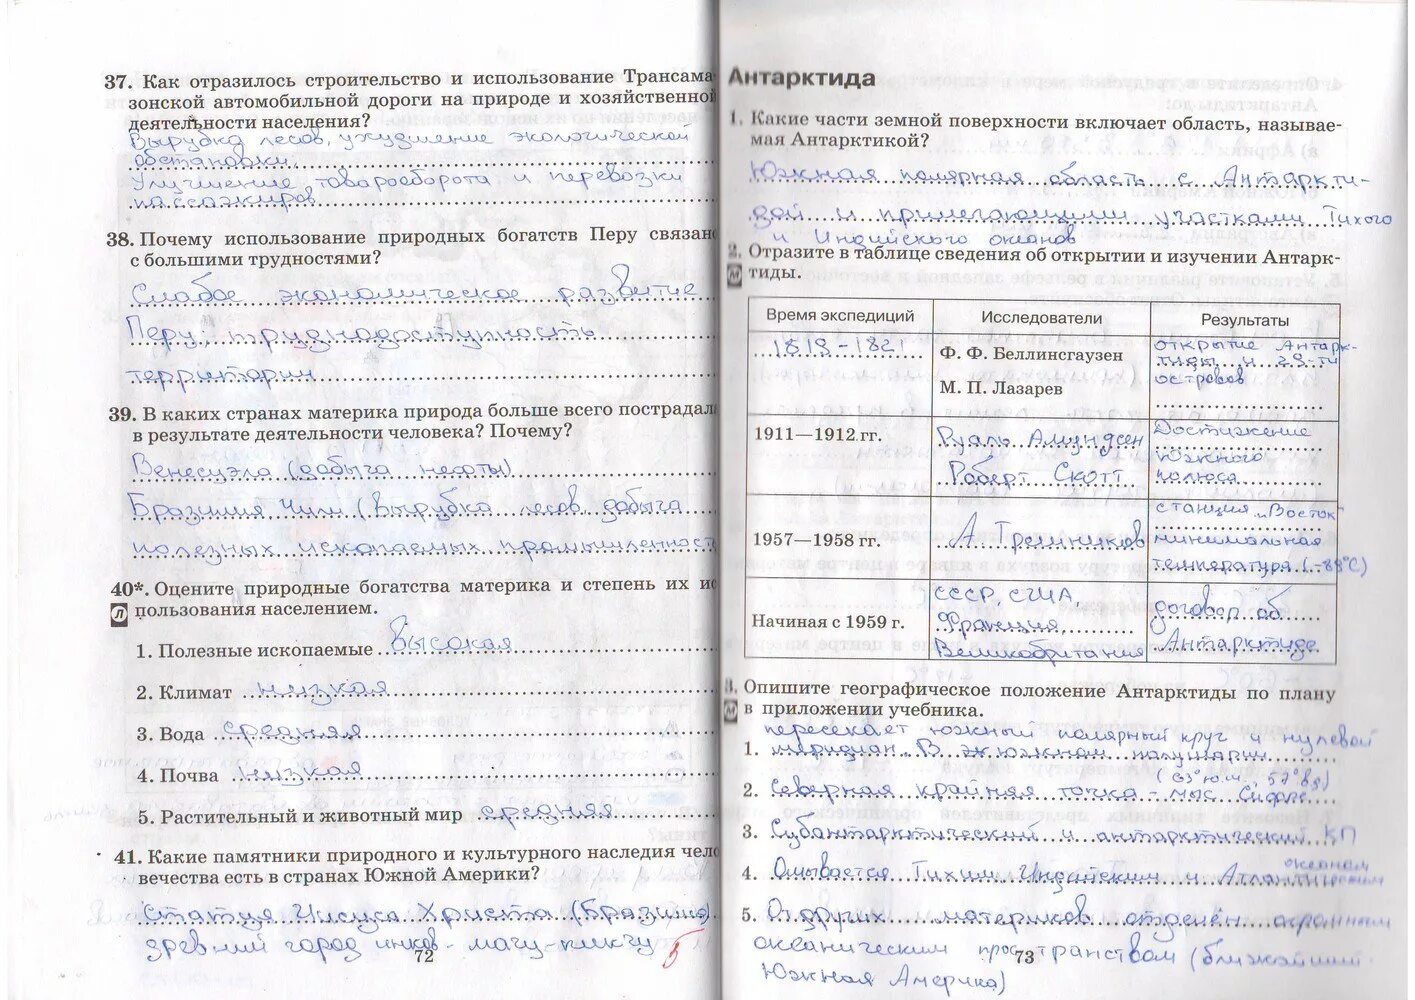 37. Как отразилось строительство и использование Трансама-
зонской автомобильной дороги на природе и хозяйственной
деятельности населения?
Вырубка лесов, ухудшение экологической
обстановки
Улучшение товарооборота и перевозки
пассажиров
38. Почему использование природных богатств Перу связано
с большими трудностями?
Слабое экономическое развитие
Перу, труднодоступность
территории
39. В каких странах материка природа больше всего пострадала
в результате деятельности человека? Почему?
Венесуэла (добыча нефты)
Бразилия Чили (вырубка лесов добыча
полезных ископаемых промышленность
40*. Оцените природные богатства материка и степень их ис-
Л пользования населением.
1. Полезные ископаемые высокая
2. Климат низкая
3. Вода средняя
4. Почва низкая
5. Растительный и животный мир средняя
41. Какие памятники природного и культурного наследия чело-
вечества есть в странах Южной Америки?
Статуя Иисуса Христа (Бразилия)
древний город инков - мачу-пикчу
72
5
Антарктида
1. Какие части земной поверхности включает область, называе-
мая Антарктикой?
Южная полярная область с Антаркти-
дой и примегающими участками Тихого
и Индийского океанов
2. Отразите в таблице сведения об открытии и изучении Антарк-
М тиды.
Время экспедиций Исследователи Результаты
1819-1821 Ф. Ф. Беллинсгаузен М. П. Лазарев открытие Антарк-
тиды и 29-ти
островов
1911—1912 гг. Руаль Амундсен Роберт Скотт Достижение
южного
полюса
1957—1958 гг. А Трешников станция "Восток"
минимальная
температура (-88°C)
Начиная с 1959 г. СССР, США,
Франция
Великобритания договор об
Антарктиде
3. Опишите географическое положение Антарктиды по плану
М в приложении учебника.
пересекает южный полярный круг и нулевой
1. меридиан. В южном полушарии
2. Северная крайняя точка - мыс Сифре
3. Субантарктический и антарктический КП
4. Омывается Тихим Индийским и Атлантическим
океанами
5. От других материков отделён огромным
океаническим пространством (ближайший
Южная Америка)
73